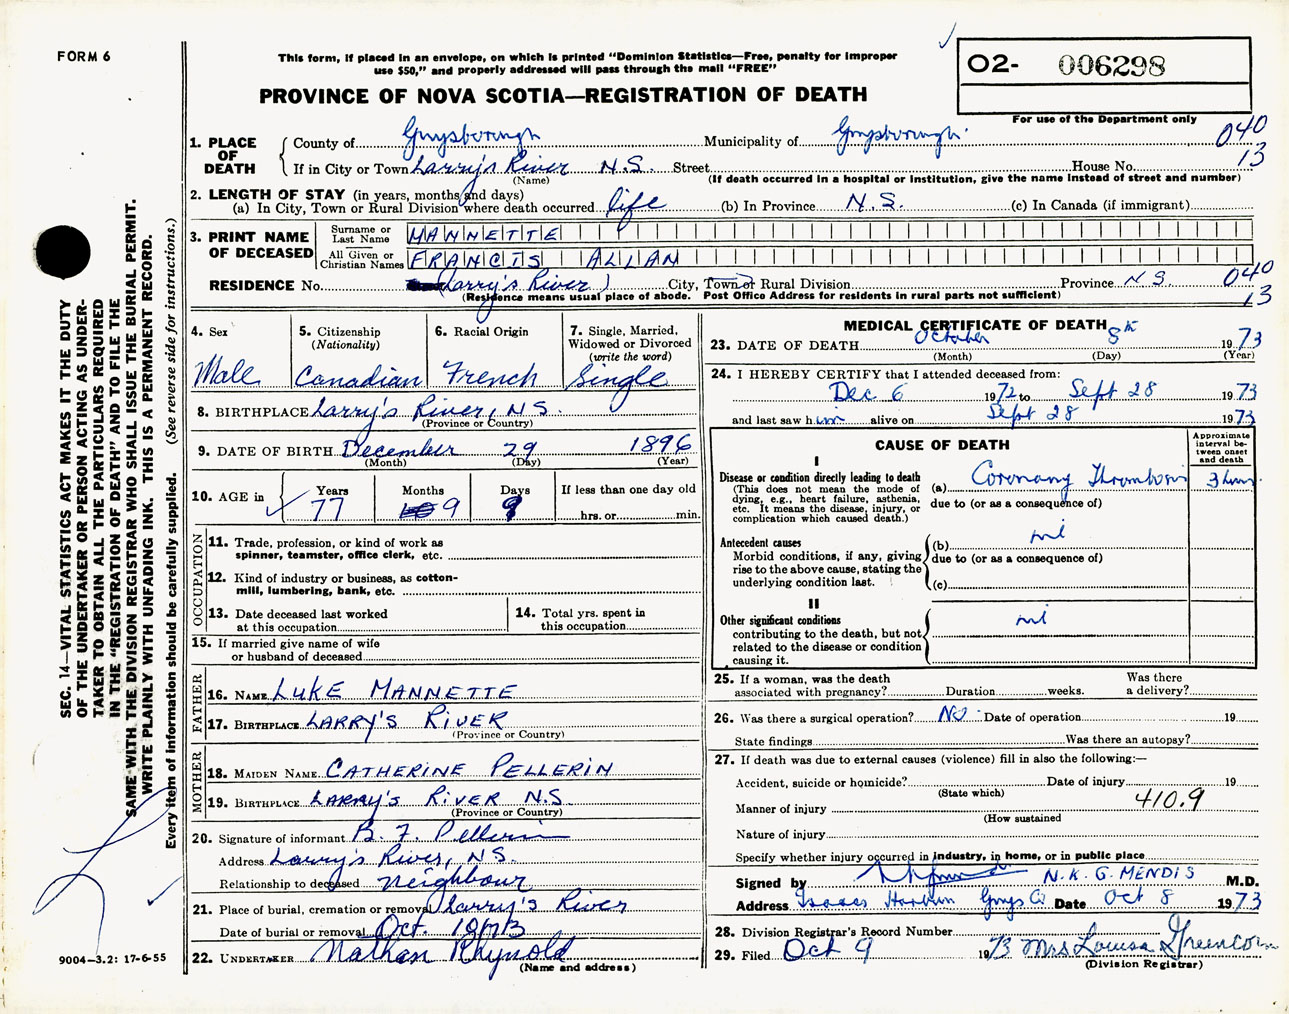 FORM 6
This form, if placed in an envelope, on which is printed "Dominion Statistics—Free, penalty for improper
use $50," and properly addressed will pass through the mail "FREE"
PROVINCE OF NOVA SCOTIA—REGISTRATION OF DEATH
O2- 006298
For use of the Department only
1. PLACE OF DEATH County of Guysborough Municipality of Guysborough 040
If in City or Town Larry's River N.S. Street House No. 13
(Name) (If death occurred in a hospital or institution, give the name instead of street and number)
2. LENGTH OF STAY (in years, months and days)
(a) In City, Town or Rural Division where death occurred life (b) In Province N.S. (c) In Canada (if immigrant)
3. PRINT NAME OF DECEASED Surname or Last Name MANNETTE
All Given or Christian Names FRANCIS ALLAN
RESIDENCE No. (Larry's River) City, Town or Rural Division Province N S. 040
(Residence means usual place of abode. Post Office Address for residents in rural parts not sufficient) 13
4. Sex
Male
5. Citizenship
(Nationality)
Canadian
6. Racial Origin
French
7. Single, Married,
Widowed or Divorced
(write the word)
Single
8. BIRTHPLACE Larry's River, N.S.
(Province or Country)
9. DATE OF BIRTH December 29 1896
(Month) (Day) (Year)
10. AGE in Years Months Days If less than one day old
77 9 9 hrs. or min.
OCCUPATION
11. Trade, profession, or kind of work as
spinner, teamster, office clerk, etc.
12. Kind of industry or business, as cotton-
mill, lumbering, bank, etc.
13. Date deceased last worked
at this occupation
14. Total yrs. spent in
this occupation
15. If married give name of wife
or husband of deceased
FATHER
16. NAME LUKE MANNETTE
17. BIRTHPLACE LARRY'S RIVER
(Province or Country)
MOTHER
18. MAIDEN NAME CATHERINE PELLERIN
19. BIRTHPLACE LARRY'S RIVER N.S
(Province or Country)
20. Signature of informant B. F. Pellerin
Address Larry's River, N.S.
Relationship to deceased neighbour
21. Place of burial, cremation or removal Larry's River
Date of burial or removal Oct. 10/73
22. UNDERTAKER Nathan Rhynold
(Name and address)
MEDICAL CERTIFICATE OF DEATH
23. DATE OF DEATH October 8th 1973
(Month) (Day) (Year)
24. I HEREBY CERTIFY that I attended deceased from:
Dec 6 1972 to Sept 28 1973
and last saw him alive on Sept 28 1973
CAUSE OF DEATH
Approximate
interval be-
tween onset
and death
I
Disease or condition directly leading to death
(This does not mean the mode of
dying, e.g., heart failure, asthenia,
etc. It means the disease, injury, or
complication which caused death.)
(a) Coronary Thrombosis 3 hrs.
due to (or as a consequence of)
Antecedent causes
Morbid conditions, if any, giving
rise to the above cause, stating the
underlying condition last.
(b) nil
due to (or as a consequence of)
(c)
II
Other significant conditions
contributing to the death, but not
related to the disease or condition
causing it.
nil
25. If a woman, was the death
associated with pregnancy? Duration weeks. Was there
a delivery?
26. Was there a surgical operation? No Date of operation 19
State findings Was there an autopsy?
27. If death was due to external causes (violence) fill in also the following:—
Accident, suicide or homicide? Date of injury 19
(State which)
Manner of injury 410.9
(How sustained
Nature of injury
Specify whether injury occurred in industry, in home, or in public place
Signed by N. K. G. MENDIS M.D.
Address Isaacs Harbour Guys Co Date Oct 8 1973
28. Division Registrar's Record Number
29. Filed Oct 9 1973 Mrs Louisa Greencorn
(Division Registrar)
SEC. 14—VITAL STATISTICS ACT MAKES IT THE DUTY
OF THE UNDERTAKER OR PERSON ACTING AS UNDER-
TAKER TO OBTAIN ALL THE PARTICULARS REQUIRED
IN THE "REGISTRATION OF DEATH" AND TO FILE THE
SAME WITH THE DIVISION REGISTRAR WHO SHALL ISSUE THE BURIAL PERMIT.
WRITE PLAINLY WITH UNFADING INK. THIS IS A PERMANENT RECORD.
Every item of information should be carefully supplied. (See reverse side for instructions.)
9004—3.2: 17-6-55